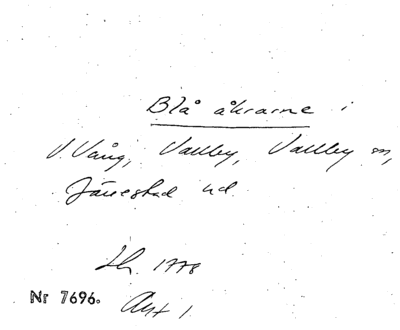 Blå åkrarne i
V. Vång, Vallby, Vallby sn,
Järrestad hd.
Sk. 1778
Nr 7696. Akt 1.